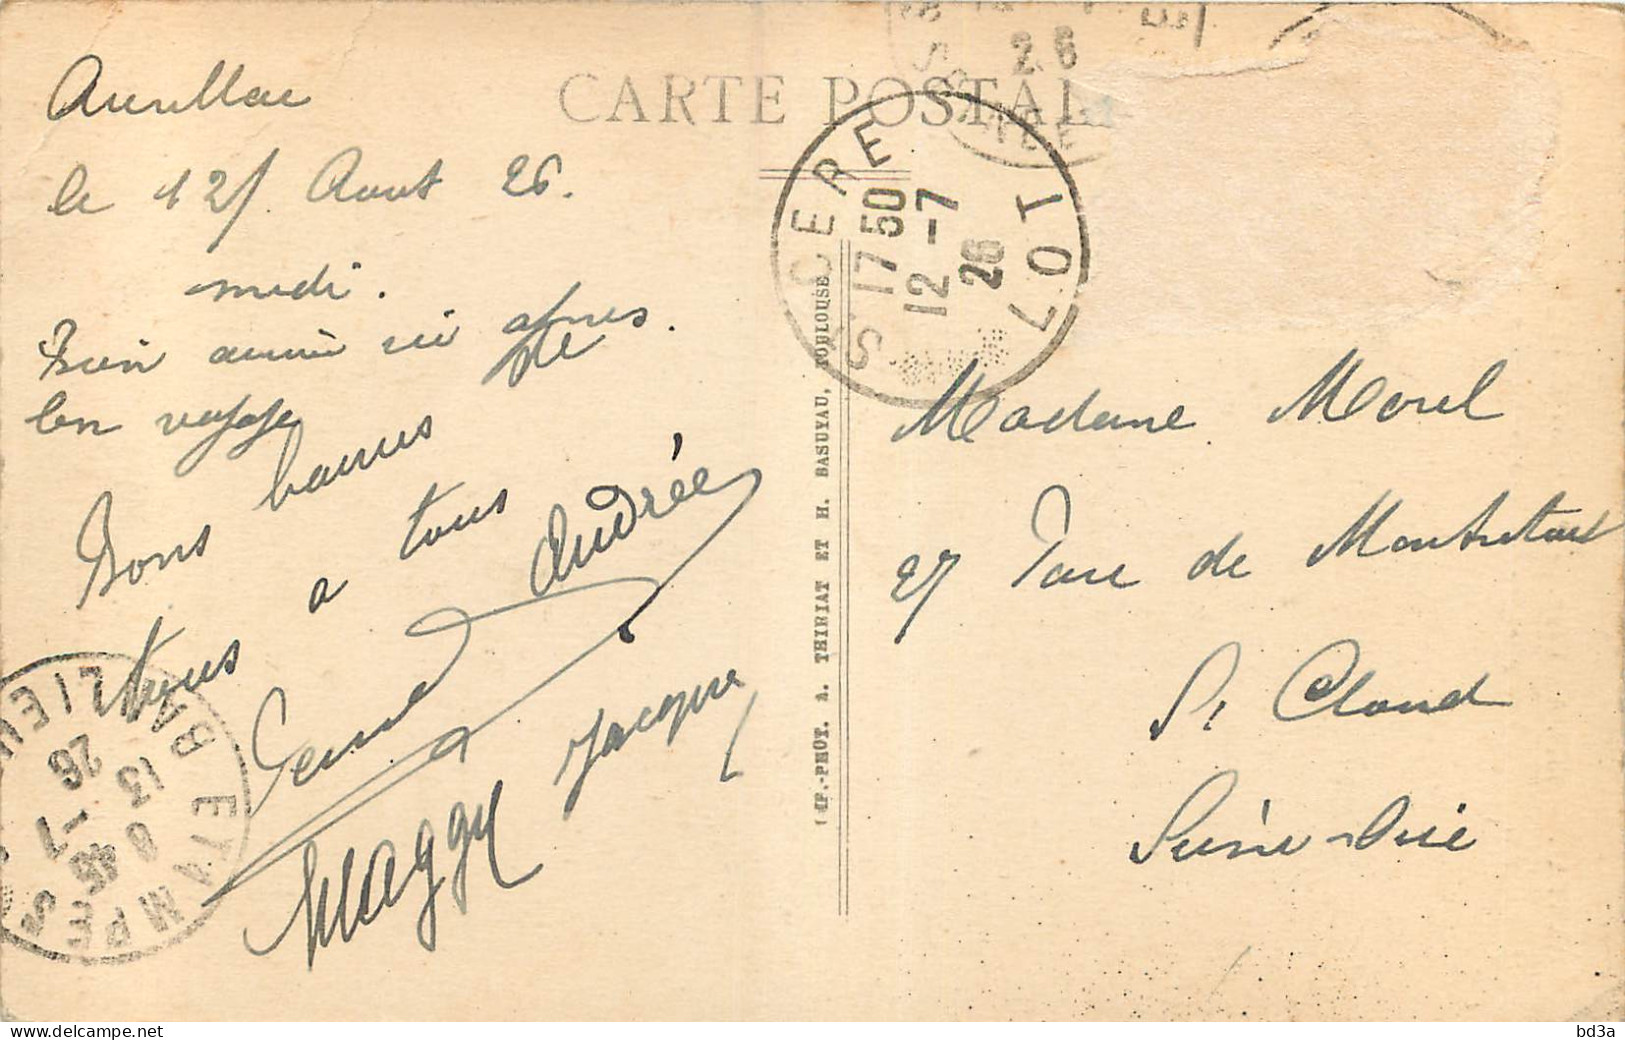 CARTE POSTALE
Aurillac
le 12/ Aout 26.
midi.
Bien arrivé ici apres
bon voyage
Bons baisers de
tous a tous
Andrée
Maggy Jacques
Madame Morel
27 Parc de Montretout
St Cloud
Seine-Oise
St CERE LOT
17 50
12 -7
26
BAZ
ETAMPES
8 46
13 -7
26
PHOT. A. THIRIAT ET H. BASUYAU, TOULOUSE
bd3a
www.delcampe.net